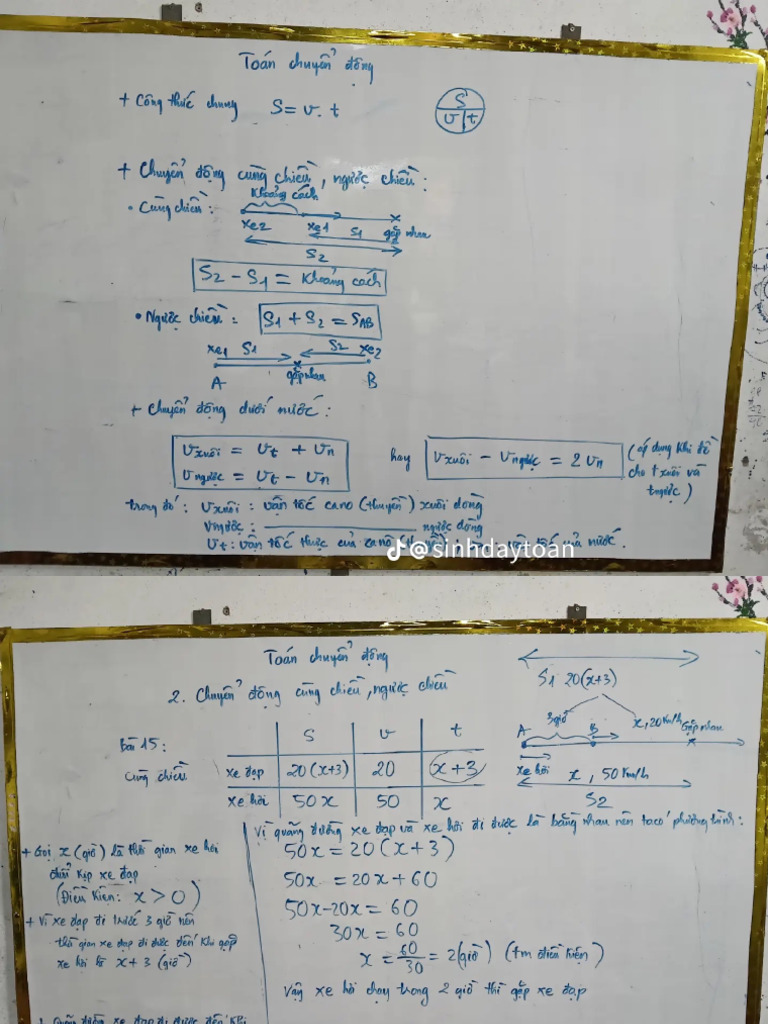 Toán chuyển động
+ Công thức chung S = v. t
S
v t
+ Chuyển động cùng chiều, ngược chiều:
Khoảng cách
• Cùng chiều:
xe2 xe1 S1 gặp nhau
S2
S2 - S1 = Khoảng cách
• Ngược chiều: S1 + S2 = SAB
xe1 S1 S2 xe2
gặp nhau
A B
+ Chuyển động dưới nước:
Vxuôi = Vt + Vn
Vngược = Vt - Vn
hay Vxuôi - Vngược = 2Vn
(áp dụng khi đề
cho t xuôi và
tngược)
trong đó: Vxuôi: vận tốc cano (thuyền) xuôi dòng
Vngược: ngược dòng
Vt: vận tốc thực của cano vận tốc của nước.
@sinhdaytoan
Toán chuyển động
2. Chuyển động cùng chiều, ngược chiều
S1 20(x+3)
3giờ x, 20 Km/h Gặp nhau
A B
xe hơi x, 50 Km/h
S2
Bài 15:
Cùng chiều
S v t
xe đạp 20(x+3) 20 x+3
xe hơi 50x 50 x
+ Gọi x (giờ) là thời gian xe hơi
đuổi kịp xe đạp
(Điều kiện: x > 0)
+ Vì xe đạp đi trước 3 giờ nên
thời gian xe đạp đi được đến khi gặp
xe hơi là x+3 (giờ)
Vì quãng đường xe đạp và xe hơi đi được là bằng nhau nên ta có phương trình:
50x = 20(x+3)
50x = 20x + 60
50x-20x = 60
30x = 60
x = 60/30 = 2(giờ) (tm điều kiện)
Vậy xe hơi chạy trong 2 giờ thì gặp xe đạp
Quãng đường xe đạp đi được đến khi